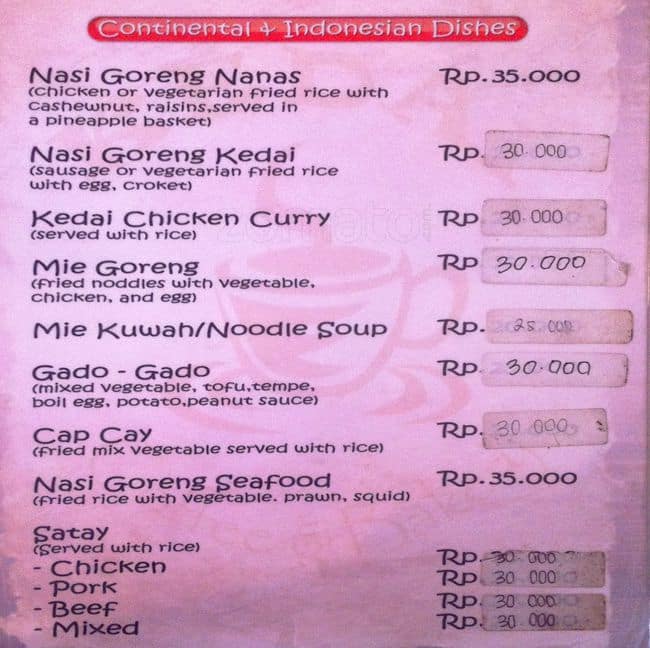 Continental & Indonesian Dishes
Nasi Goreng Nanas Rp. 35.000
(chicken or vegetarian fried rice with
cashewnut, raisins,served in
a pineapple basket)
Nasi Goreng Kedai Rp. 30.000
(sausage or vegetarian fried rice
with egg, croket)
Kedai Chicken Curry Rp. 30.000
(served with rice)
Mie Goreng Rp 30.000
(fried noddles with vegetable,
chicken, and egg)
Mie Kuwah/Noodle Soup Rp. 25.000
Gado - Gado Rp. 30.000
(mixed vegetable, tofu,tempe,
boil egg, potato,peanut sauce)
Cap Cay Rp. 30.000
(fried mix vegetable served with rice)
Nasi Goreng Seafood Rp. 35.000
(fried rice with vegetable. prawn, squid)
Satay
(Served with rice)
- Chicken Rp. 30 000
- Pork Rp. 30 000
- Beef Rp. 30 000
- Mixed Rp. 30 000
zomato